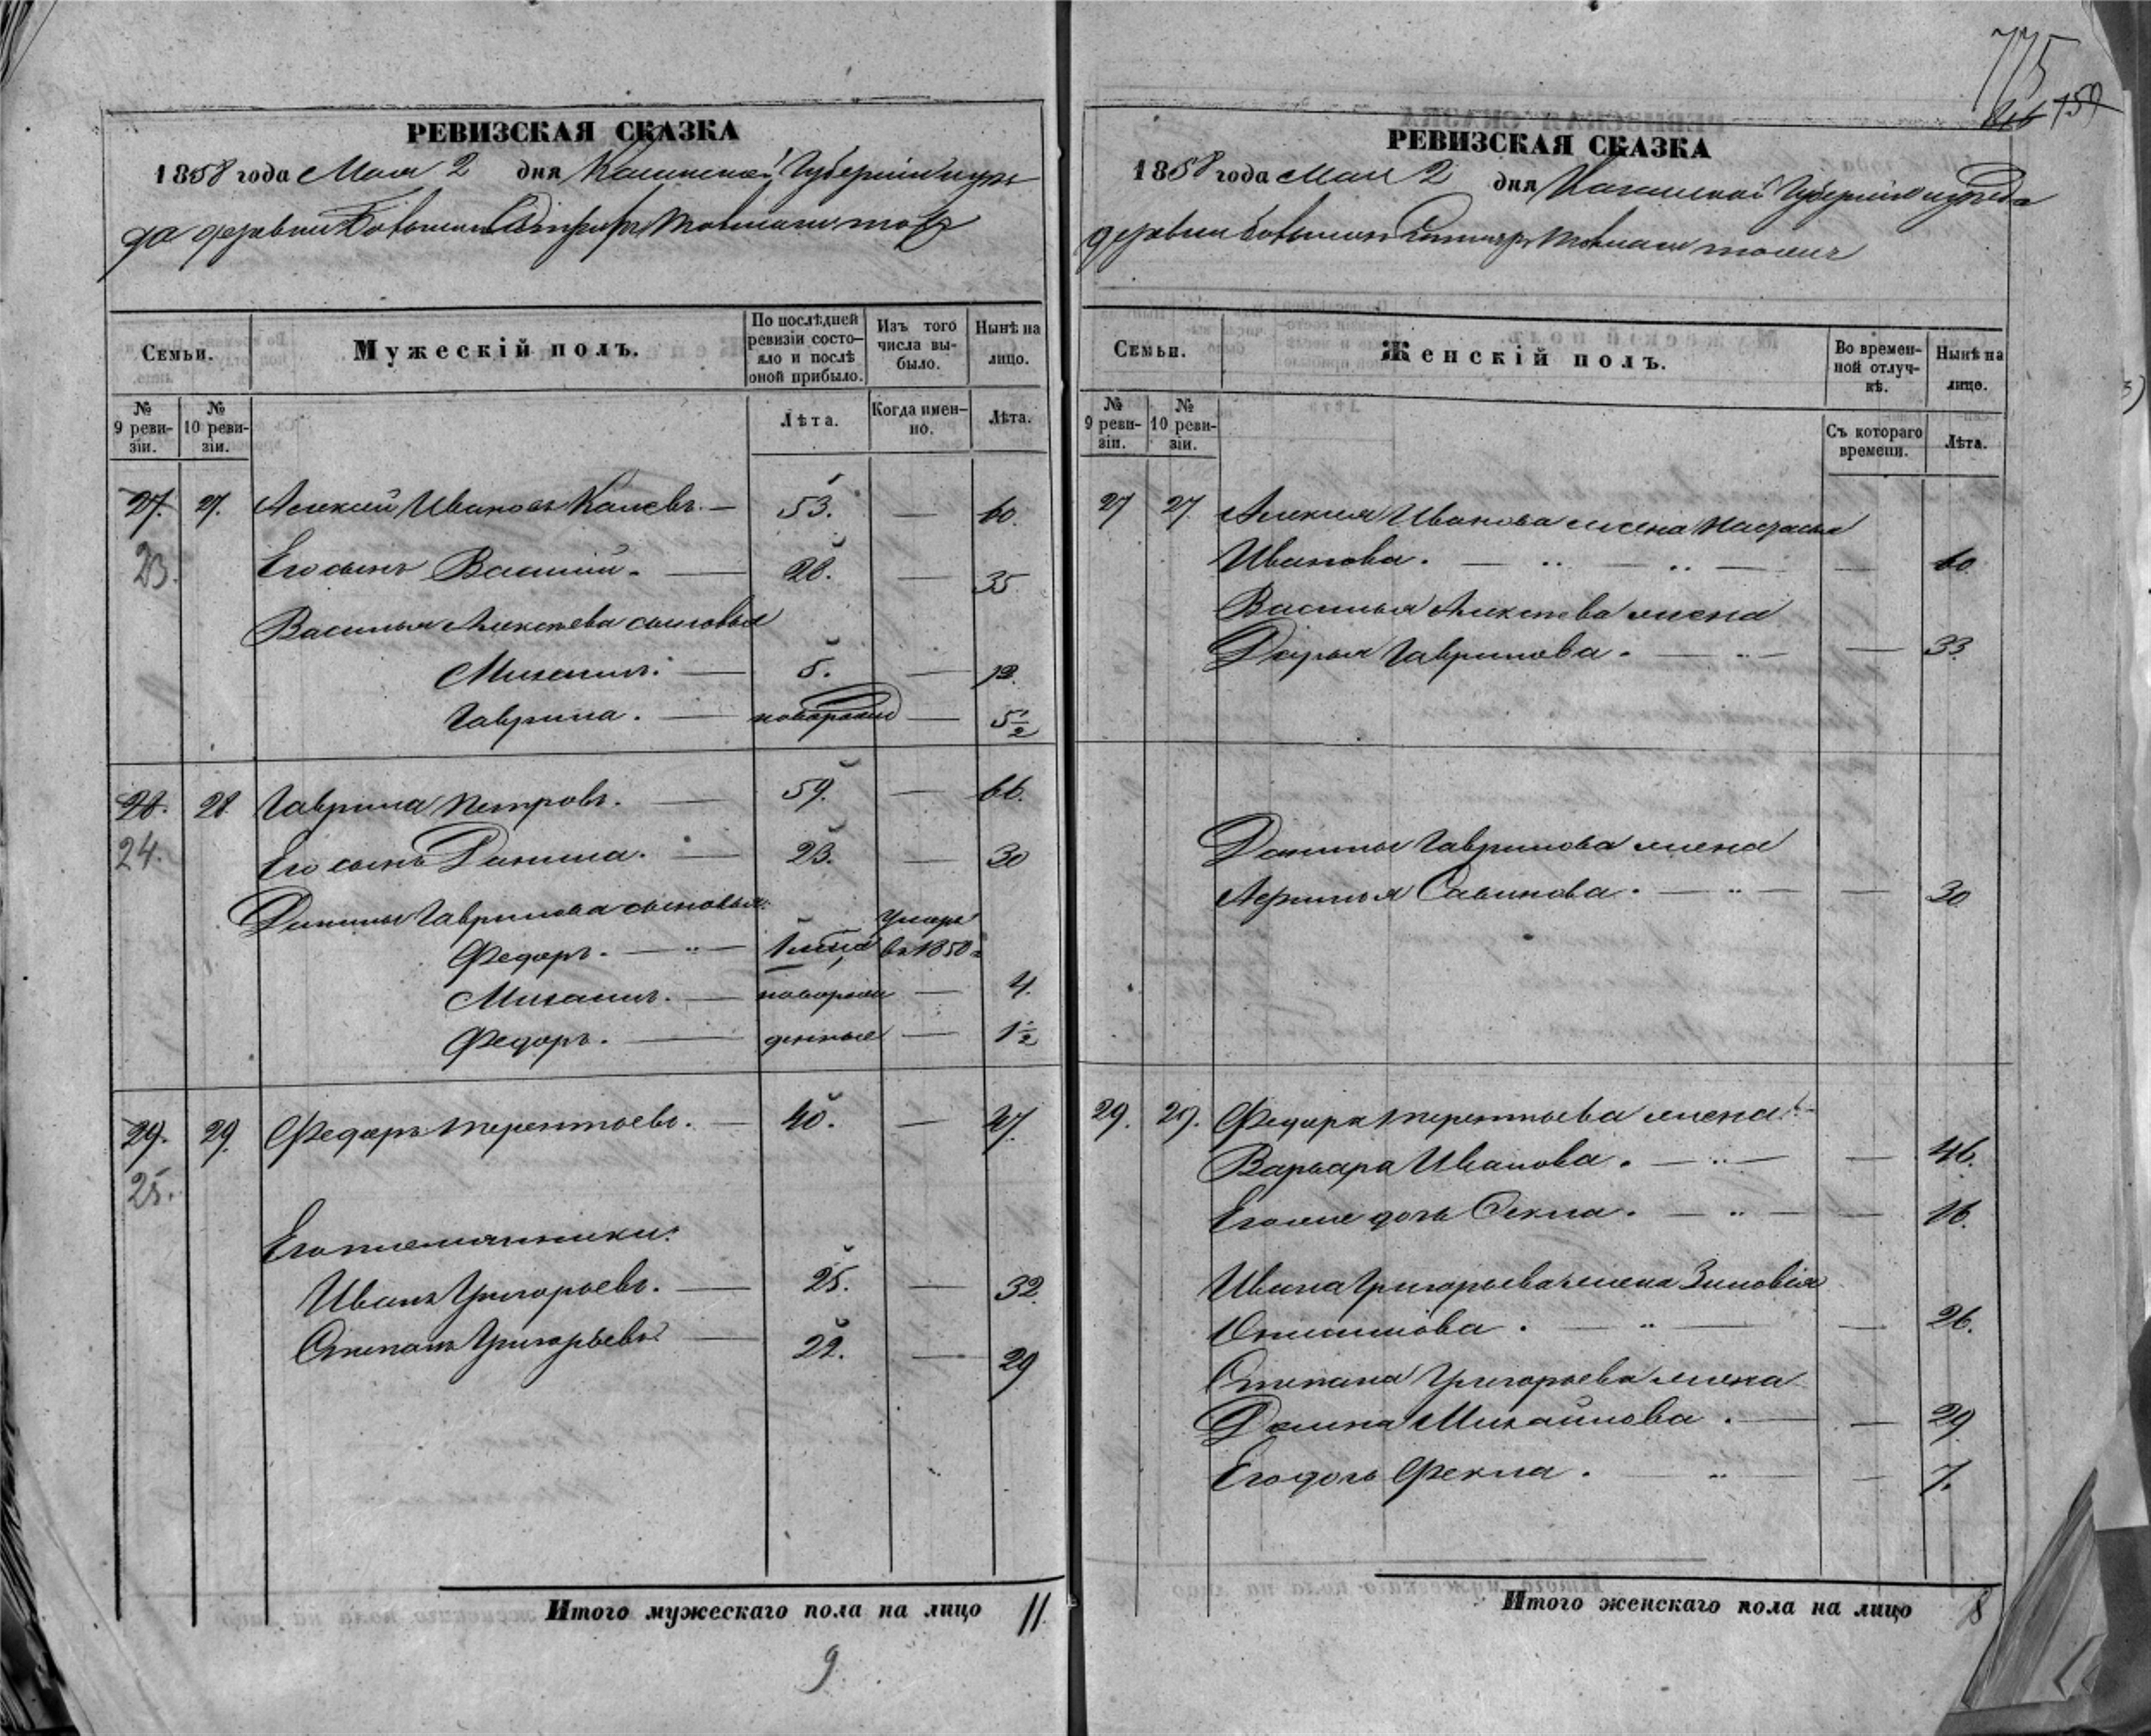 РЕВИЗСКАЯ СКАЗКА
1858 года Мая 2 дня Казанской Губернии
да деревни
Семьи.
Мужескій полъ.
По послѣдней ревизіи состояло и послѣ оной прибыло.
Изъ того числа выбыло.
Нынѣ на лицо.
№ 9 ревизіи.
№ 10 ревизіи.
Лѣта.
Когда именно.
Лѣта.
27. 27. Алексей Ивановъ — 53. — 60.
23.
Его сынъ Василий. — 28. — 35
Василья Алексеева сыновья
Михаилъ. — 5. — 12.
Гаврила. — новорожд — 5 1/2
28. 28 Гаврила Петровъ. — 59. — 66.
24.
Его сынъ Данила. — 23. — 30
Данилы Гаврилова сыновья:
Федоръ. — " — 1 умеръ въ 1850
Михаилъ. — новорож — 4.
Федоръ. — денные — 1 1/2
29. 29. Федоръ Терентьевъ. — 40. — 47.
25.
Его племянники:
Иванъ Григорьевъ. — 25. — 32.
Степанъ Григорьевъ — 22. — 29
Итого мужескаго пола на лицо 11.
9.
775
159
РЕВИЗСКАЯ СКАЗКА
1858 года Мая 2 дня Казанской Губернии
деревни
Семьи.
Женскій полъ.
Во временной отлучкѣ.
Нынѣ на лицо.
№ 9 ревизіи.
№ 10 ревизіи.
Съ котораго времени.
Лѣта.
27 27. Алексея Иванова жена Настасья
Иванова. — " — " — — 60
Василья Алексеева жена
Дарья Гаврилова. — " — — 33.
Данилы Гаврилова жена
Савинова. — " — — 30
29. 29. Федора Терентьева жена
Варвара Иванова. — " — — 46.
Его же дочь Фекла. — " — — 16.
Ивана Григорьева жена Зиновія
— " — — 26.
Степана Григорьева жена
Михайлова. — — 29
Его дочь Фекла. — " — — 7.
Итого женскаго пола на лицо 8